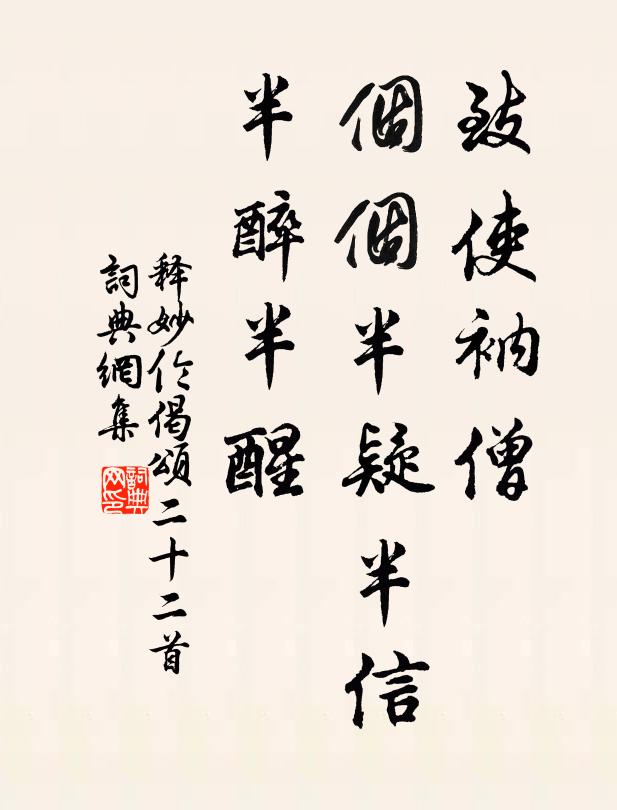 致使衲僧
個個半疑半信
半醉半醒
释妙伦偈頌二十二首
詞典網集
詞典网印